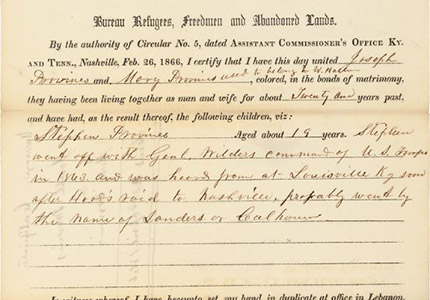 Bureau Refugees, Freedmen and Abandoned Lands.
By the authority of Circular No. 5, dated Assistant Commissioner's Office Ky.
and Tenn., Nashville, Feb. 26, 1866, I certify that I have this day united Joseph
Provines and Mary Provines used to belong to W. colored, in the bonds of matrimony,
they having been living together as man and wife for about Twenty one years past,
and have had, as the result thereof, the following children, viz:
Stephen Provines Aged about 19 years. Stephen
went off with Genl. Wilders command of U.S. Troops
in 1863. and was heard from at Louisville Ky soon
after Hoods raid to Nashville, probably went by
the name of Sanders or Calhoun
In witness whereof I have hereunto set my hand, in duplicate at office in Lebanon,